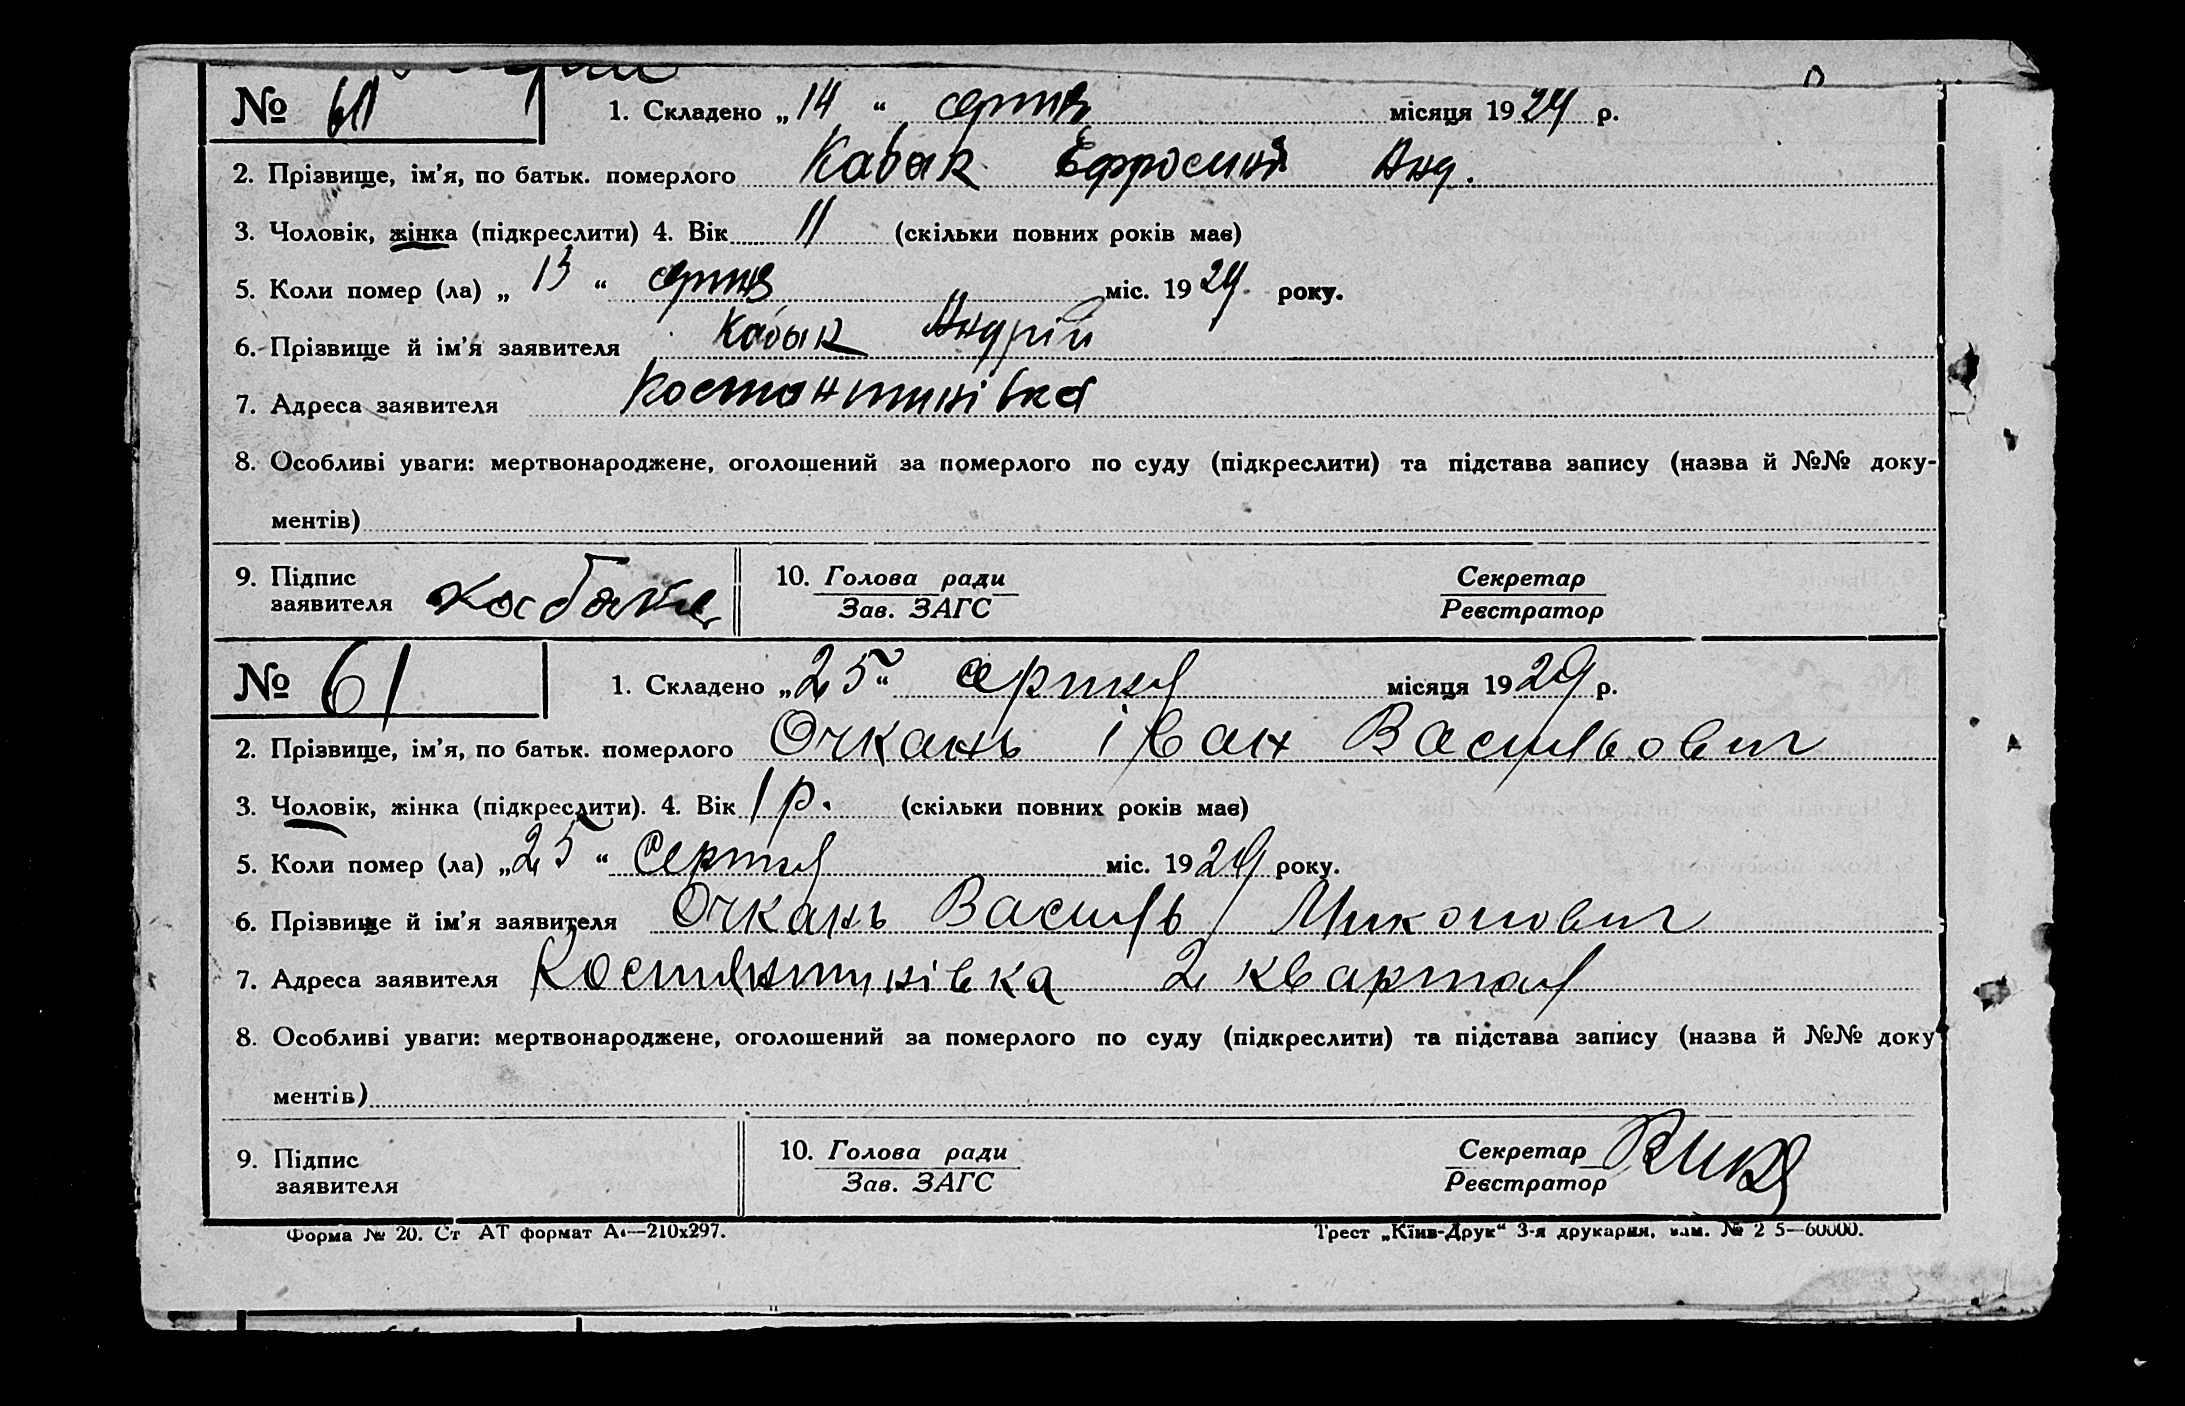 № 1. Складено „14“ серпня місяця 1929 р.
2. Прізвище, ім'я, по батьк. померлого Кабак Ефросиня Анд.
3. Чоловік, жінка (підкреслити) 4. Вік 11 (скільки повних років має)
5. Коли помер (ла) „13“ серпня міс. 1929 року.
6. Прізвище й ім'я заявителя Кабак Андрій
7. Адреса заявителя Костантинівка
8. Особливі уваги: мертвонароджене, оголошений за померлого по суду (підкреслити) та підстава запису (назва й №№ доку-
ментів)
9. Підпис заявителя
10. Голова ради Зав. ЗАГС
Секретар Реєстратор
№ 61 1. Складено „25“ серпня місяця 1929 р.
2. Прізвище, ім'я, по батьк. померлого Очкань Іван Васильович
3. Чоловік, жінка (підкреслити). 4. Вік 1 р. (скільки повних років має)
5. Коли помер (ла) „25“ Серпня міс. 1929 року.
6. Прізвище й ім'я заявителя Очкань Василь
7. Адреса заявителя Костянтинівка 2 квартал
8. Особливі уваги: мертвонароджене, оголошений за померлого по суду (підкреслити) та підстава запису (назва й №№ доку
ментів)
9. Підпис заявителя
10. Голова ради Зав. ЗАГС
Секретар Реєстратор
Форма № 20. Ст АТ формат А4—210х297. Трест „Київ-Друк“ 3-я друкарня, зам. № 2 5—60000.